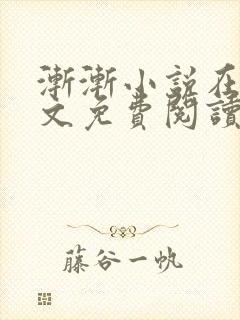 漸漸小説在
文免費閱讀
藤谷一帆